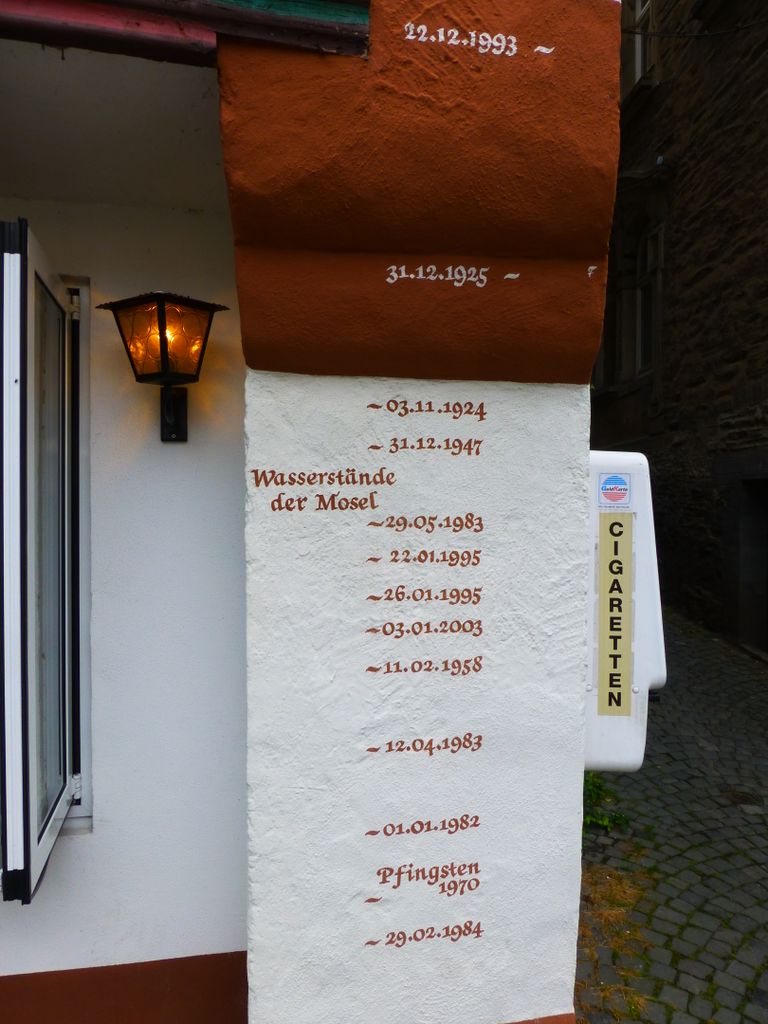 22.12.1993 ~
31.12.1925 ~
~ 03.11.1924
~ 31.12.1947
Wasserstände
der Mosel
~ 29.05.1983
~ 22.01.1995
~ 26.01.1995
~ 03.01.2003
~ 11.02.1958
~ 12.04.1983
~ 01.01.1982
Pfingsten
1970
~
~ 29.02.1984
GeldKarte
CIGARETTEN